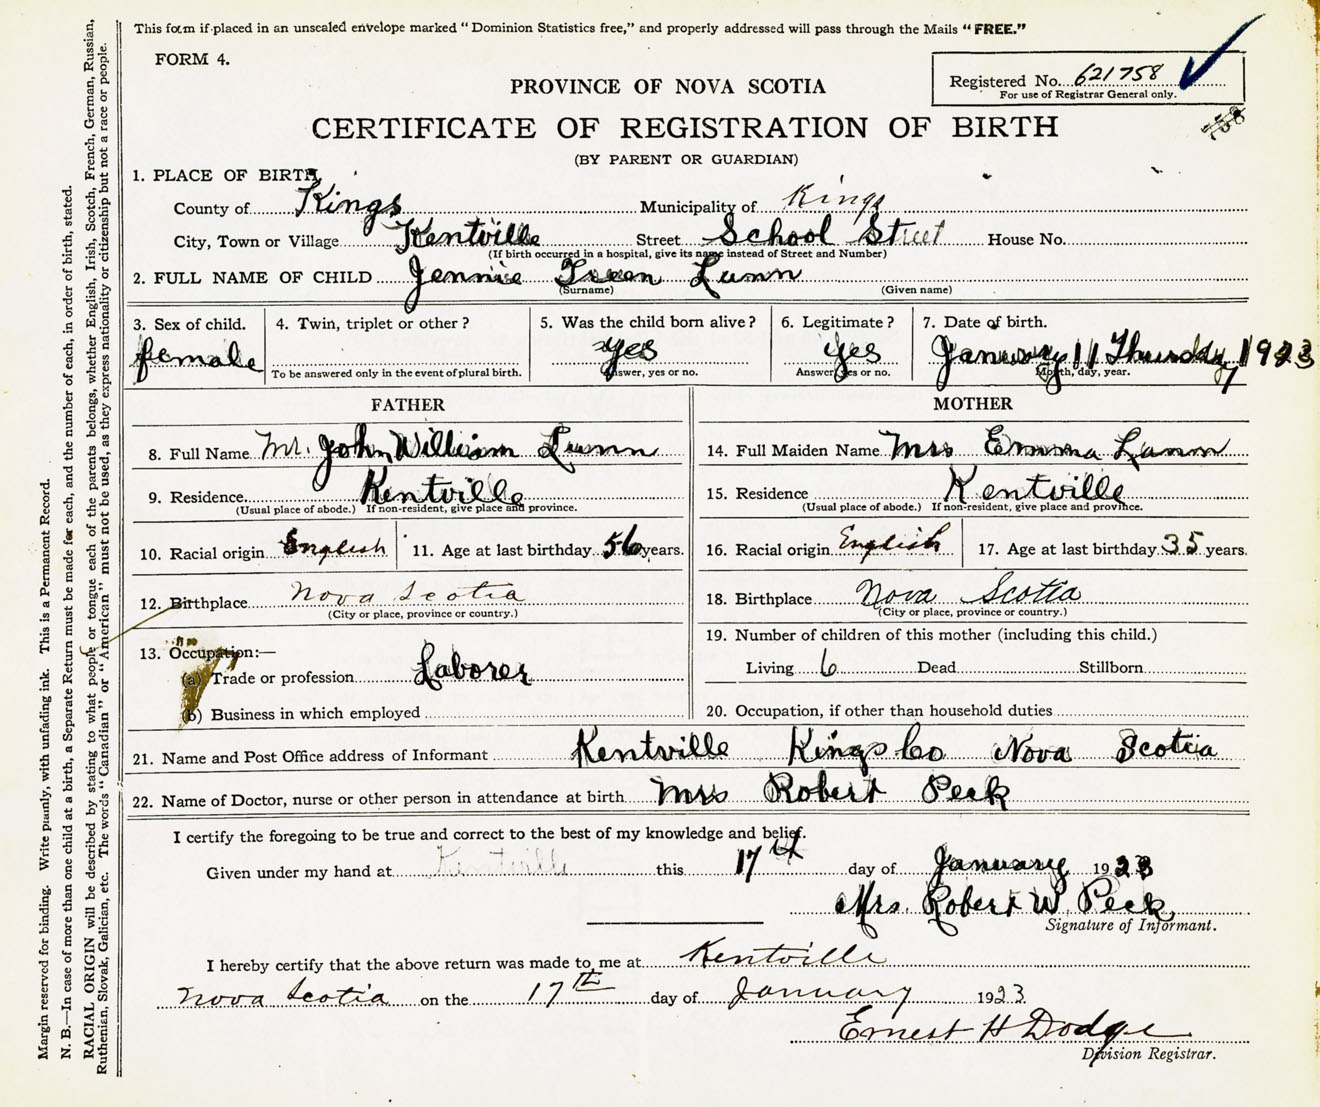 This form if placed in an unsealed envelope marked "Dominion Statistics free," and properly addressed will pass through the Mails "FREE."
FORM 4.
Registered No. 621758
For use of Registrar General only.
758
PROVINCE OF NOVA SCOTIA
CERTIFICATE OF REGISTRATION OF BIRTH
(BY PARENT OR GUARDIAN)
1. PLACE OF BIRTH,
County of Kings Municipality of Kings
City, Town or Village Kentville Street School Street House No.
(If birth occurred in a hospital, give its name instead of Street and Number)
2. FULL NAME OF CHILD Jennie Lunn
(Surname) (Given name)
3. Sex of child. 4. Twin, triplet or other? 5. Was the child born alive? 6. Legitimate? 7. Date of birth.
female yes yes January 11 Thursday 1923
To be answered only in the event of plural birth. Answer, yes or no. Answer, yes or no. Month, day, year.
FATHER MOTHER
8. Full Name Mr. John William Lunn 14. Full Maiden Name Mrs Emma Lunn
9. Residence Kentville 15. Residence Kentville
(Usual place of abode.) If non-resident, give place and province. (Usual place of abode.) If non-resident, give place and province.
10. Racial origin English 11. Age at last birthday 56 years. 16. Racial origin English 17. Age at last birthday 35 years.
12. Birthplace Nova Scotia 18. Birthplace Nova Scotia
(City or place, province or country.) (City or place, province or country.)
13. Occupation:— 19. Number of children of this mother (including this child.)
(a) Trade or profession Laborer Living 6 Dead Stillborn
(b) Business in which employed 20. Occupation, if other than household duties
21. Name and Post Office address of Informant Kentville Kings Co Nova Scotia
22. Name of Doctor, nurse or other person in attendance at birth Mrs Robert Peck
I certify the foregoing to be true and correct to the best of my knowledge and belief.
Given under my hand at Kentville this 17th day of January 1923
Mrs. Robert W. Peck
Signature of Informant.
I hereby certify that the above return was made to me at Kentville
Nova Scotia on the 17th day of January 1923
Ernest H Dodge
Division Registrar.
Margin reserved for binding. Write plainly, with unfading ink. This is a Permanent Record.
N. B.—In case of more than one child at a birth, a Separate Return must be made for each, and the number of each, in order of birth, stated.
RACIAL ORIGIN will be described by stating to what people or tongue each of the parents belongs, whether English, Irish, Scotch, French, German, Russian,
Ruthenian, Slovak, Galician, etc. The words "Canadian" or "American" must not be used, as they express nationality or citizenship but not a race or people.